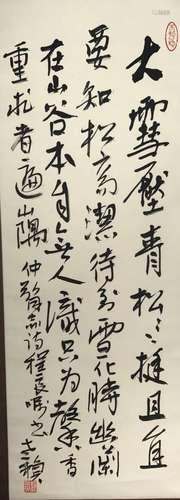 大雪壓青松々挺且直
要知松高潔待到雪化時幽蘭
在山谷本自無人識只為馨香
重求者遍山隅 仲弘詩 程良